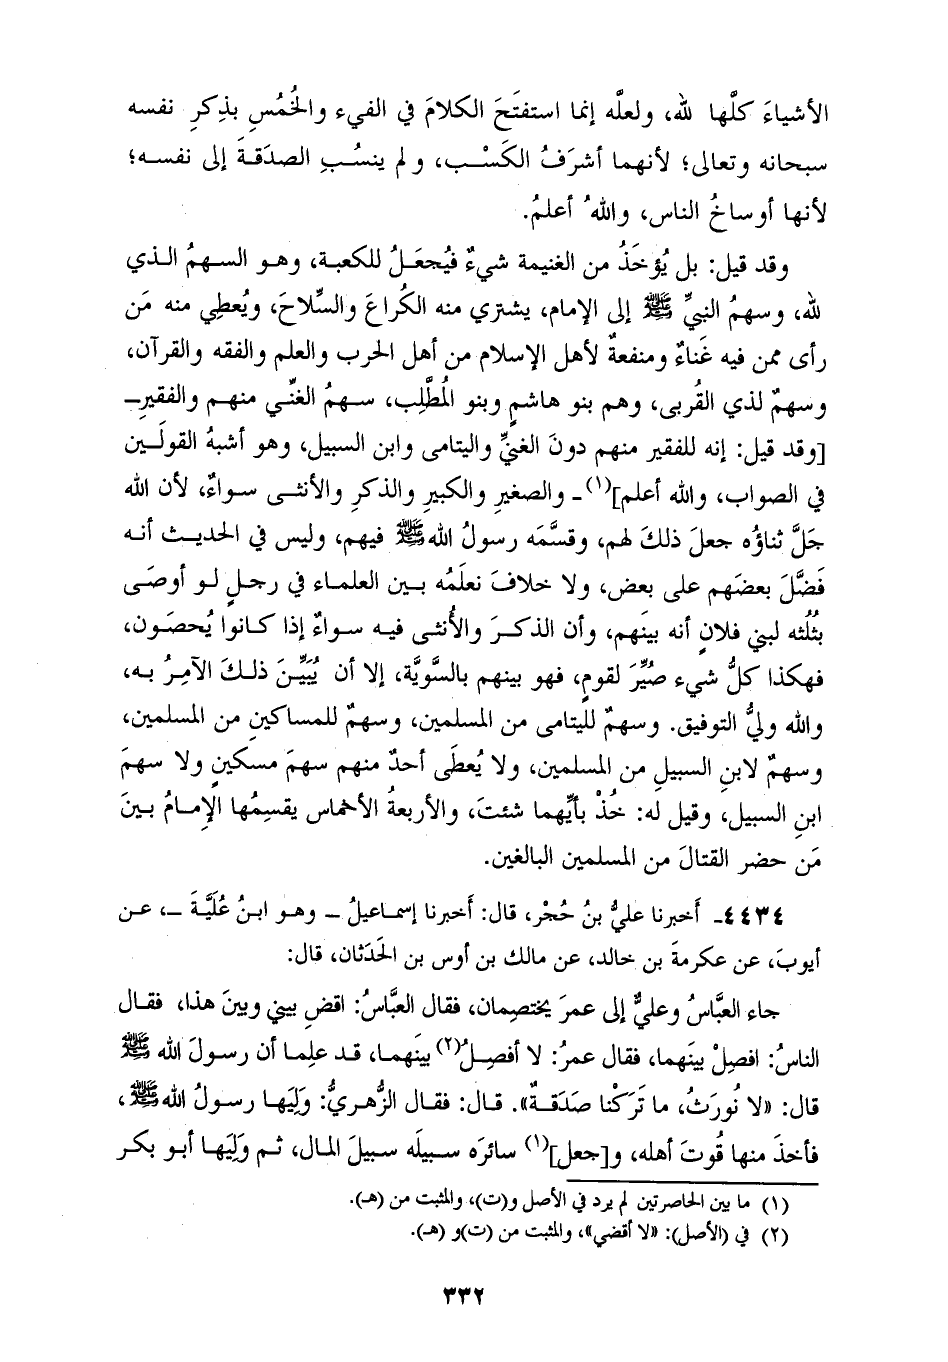 الأشياءَ كلَّها لله، ولعلَّه إنما استفتَحَ الكلامَ في الفيء والخُمُسِ بذِكرِ نفسه
سبحانه وتعالى؛ لأنهما أشرَفُ الكَسْب، ولم ينسُبِ الصدَقةَ إلى نفسه؛
لأنها أوساخُ الناس، واللهُ أعلمُ.
وقد قيل: بل يُؤخَذُ من الغنيمة شيءٌ فيُجعَلُ للكعبة، وهو السهمُ الذي
لله، وسهمُ النبيِّ ﷺ إلى الإمام، يشتري منه الكُراعَ والسِّلاحَ، ويُعطِي منه مَن
رأى ممن فيه غَناءٌ ومنفعةٌ لأهل الإسلام من أهل الحرب والعلم والفقه والقرآن،
وسهمٌ لذي القُربى، وهم بنو هاشمٍ وبنو المُطَّلِب، سهمُ الغنِّي منهم والفقيرِ ــ
[وقد قيل: إنه للفقير منهم دونَ الغنيِّ واليتامى وابن السبيل، وهو أشبهُ القولَين
في الصواب، والله أعلم](١) ـ والصغيرِ والكبيرِ والذكرِ والأنثى سواءٌ، لأن الله
جَلَّ ثناؤُه جعلَ ذلكَ لهم، وقسَّمَه رسولُ الله ﷺ فيهم، وليس في الحديث أنه
فَضَّلَ بعضَهم على بعض، ولا خلافَ نعلَمُه بين العلماء في رجلٍ لو أوصَى
بثُلُثه لبني فلانٍ أنه بينَهم، وأن الذكرَ والأُنثى فيه سواءٌ إذا كانوا يُحصَون،
فهكذا كلُّ شيء صُيِّرَ لقومٍ، فهو بينهم بالسَّويَّة، إلا أن يُبَيِّنَ ذلكَ الآمِرُ به،
والله وليُّ التوفيق. وسهمٌ لليتامى من المسلمين، وسهمٌ للمساكينِ من المسلمين،
وسهمٌ لابنِ السبيلِ من المسلمين، ولا يُعطَى أحدٌ منهم سهمَ مسكينٍ ولا سهمَ
ابنِ السبيل، وقيل له: خُذْ بأيِّهما شئتَ، والأربعةُ الأخماس يقسِمُها الإمامُ بينَ
مَن حضر القتالَ من المسلمين البالغين.
٤٤٣٤ـ أَخبرنا عليُّ بنُ حُجْر، قال: أَخبرنا إسماعيلُ ــ وهو ابنُ عُلَيَّةَ ــ، عن
أيوبَ، عن عكرمةَ بن خالد، عن مالك بن أوس بن الحَدَثان، قال:
جاء العبَّاسُ وعليٌّ إلى عمرَ يختصِمان، فقال العبَّاسُ: اقضِ بيني وبينَ هذا، فقال
الناسُ: افصِلْ بينَهما، فقال عمرُ: لا أفصِلُ(٢) بينَهما، قد علِما أن رسولَ الله ﷺ
قال: «لا نُورَثُ، ما تَرَكْنا صَدَقةٌ». قال: فقال الزُّهريُّ: وَلِيَها رسولُ الله ﷺ،
فأخذَ منها قُوتَ أهله، و[جعل](١) سائرَه سبيلَه سبيلَ المال، ثم وَلِيَها أبو بكر
(١) ما بين الحاصرتين لم يرد في الأصل و(ت)، والمثبت من (هـ).
(٢) في (الأصل): «لا أقضي»، والمثبت من (ت)و (هـ).
٣٣٢